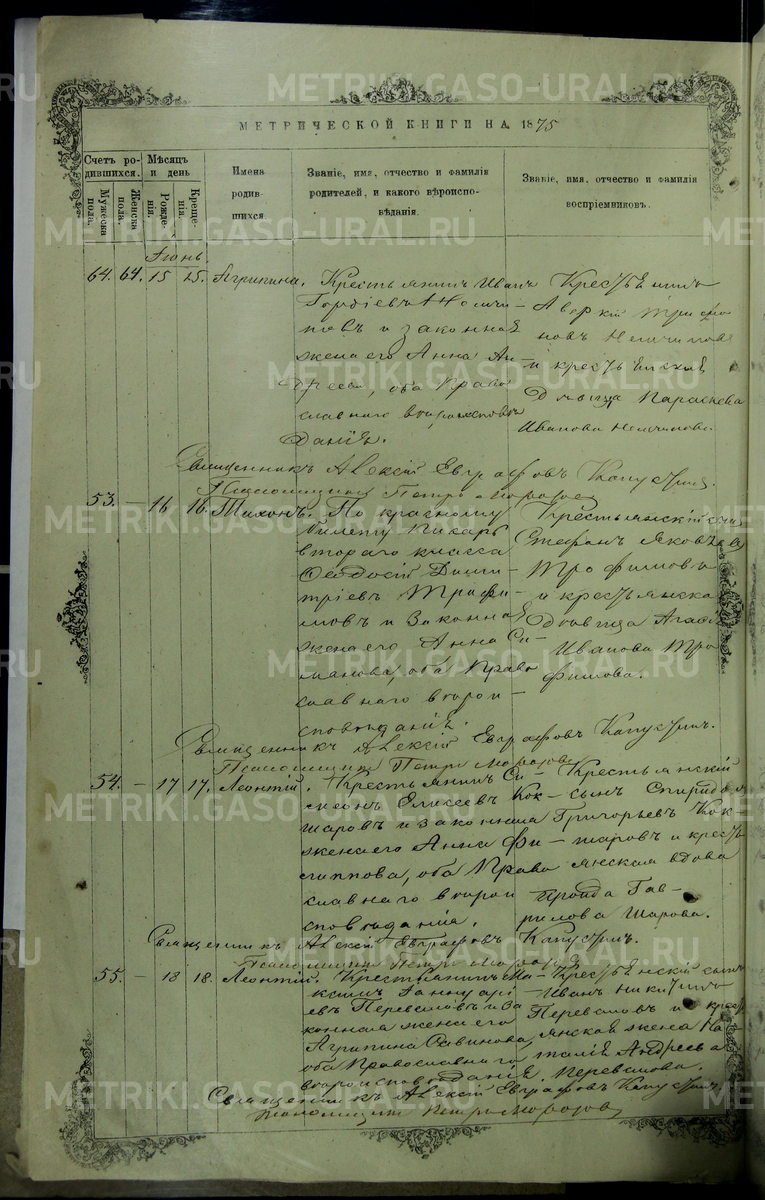 METRIKI.GASO-URAL.RU
МЕТРИЧЕСКОЙ КНИГИ НА 1875
Счетъ родившихся.
Мужеска пола.
Женска пола.
Мѣсяцъ и день
Рожденія.
Крещенія.
Имена родившихся.
Званіе, имя, отчество и фамилія родителей, и какого вѣроисповѣданія.
Званіе, имя, отчество и фамилія воспріемниковъ.
Іюнь
64. 64. 15 15. Агрипина.
Крестьянинъ Иванъ
Гордіевъ
и законная
жена его Анна Ан-
дреева, оба Право
славнаго вѣроисповѣ
данія.
Крестьянинъ
Аверкій Трифо
новъ
и крестьянская
дѣвица Параскева
Иванова
Священникъ Алексій Евграфовъ Капустинъ.
Псаломщикъ Петръ Морозовъ
53. — 16 16. Тихонъ.
По красному
билету Писарь
втораго класса
Ѳеодосій Дими-
тріевъ Трофи-
мовъ и законная
жена его Анна Си-
манова, оба Право
славнаго вѣрои-
сповѣданія.
Крестьянскій сынъ
Стефанъ Яковлевъ
Трофимовъ
и крестьянска
дѣвица
Иванова Тро
фимова.
Священникъ Алексій Евграфовъ Капустинъ.
Псаломщикъ Петръ Морозовъ
54. — 17 17. Леонтій.
Крестьянинъ Си-
меонъ Елисеевъ Кок-
шаровъ и законная
жена его Анна Фи-
липпова, оба Право
славнаго вѣрои
сповѣданія.
Крестьянскій
сынъ Спиридонъ
Григорьевъ Кок-
шаровъ и кресть
янская вдова
Гав-
рилова Шарова.
Священникъ Алексій Евграфовъ Капустинъ.
Псаломщикъ Петръ Морозовъ
55. — 18 18. Леонтій.
Крестьянинъ Ма-
ксимъ Ианнуарі-
евъ Переваловъ и за
конная жена его
Агрипина Савинова,
оба Православнаго
вѣроисповѣданія.
Крестьянскій сынъ
Иванъ Никитинъ
Переваловъ и крест
янская жена На
талія Андреева
Перевалова.
Священникъ Алексій Евграфовъ Капустинъ.
Псаломщикъ Петръ Морозовъ